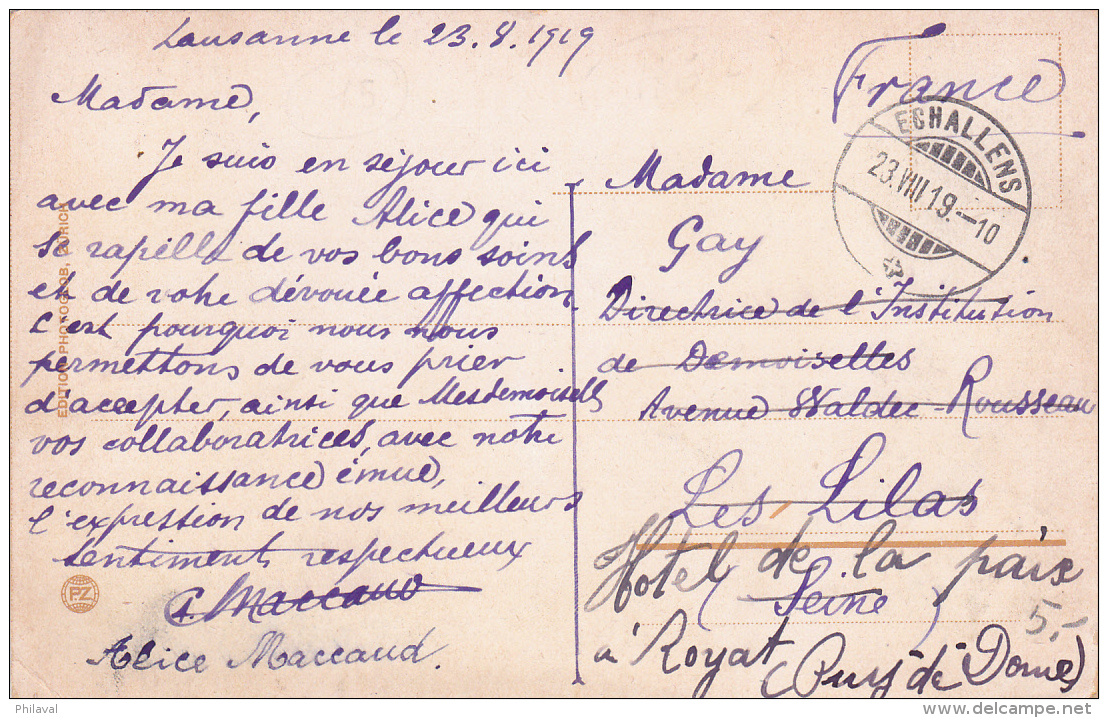 Lausanne le 23.8.1919
Madame,
Je suis en séjour ici
avec ma fille Alice qui
se rapelle de vos bons soins
et de votre dévouée affection.
C'est pourquoi nous nous
permettons de vous prier
d'accepter, ainsi que Mesdemoiselles
vos collaboratrices, avec notre
reconnaissance émue,
l'expression de nos meilleurs
sentiments respectueux
Maccaud
Alice Maccaud.
EDITION PHOTOGLOB, ZÜRICH
PZ
France
ECHALLENS
23.VIII 19.-10
Madame
Gay
Directrice de l'Institution
de Demoiselles
Avenue Waldec-Rousseau
Les Lilas
Hotel de la paix
(Seine)
5.-
à Royat
(Puy-de-Dome)
Philaval
www.delcampe.net